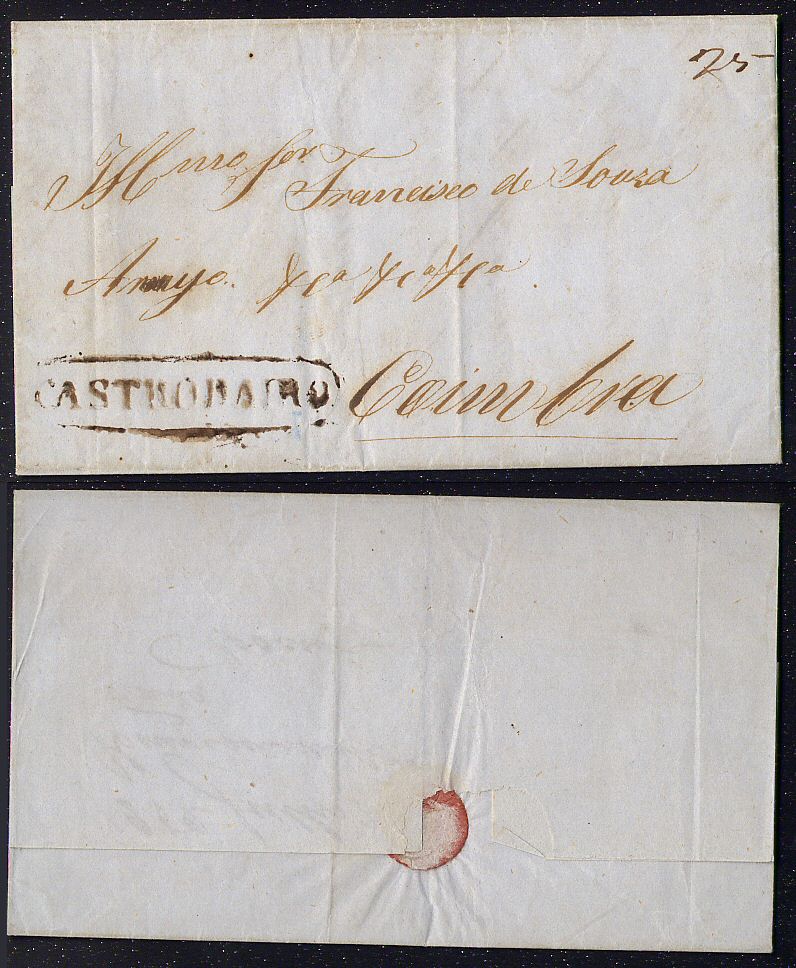 25
Illmo Senr Francisco de Souza
Araujo. &ca &ca &ca
CASTRODAIRO
Coimbra